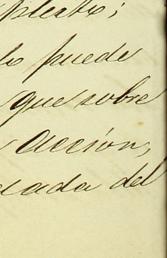 pleito;
lo puede
que sobre
acción,
cada del